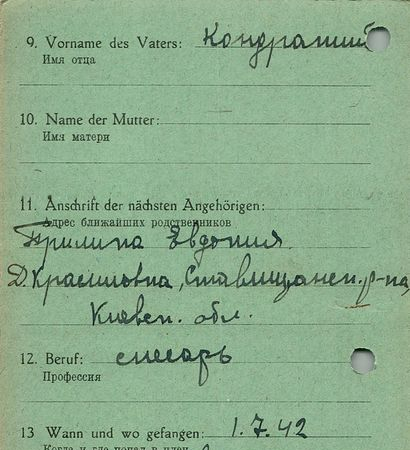 9. Vorname des Vaters: Кондратий
Имя отца
10. Name der Mutter:
Имя матери
11. Anschrift der nächsten Angehörigen:
Адрес ближайших родственников
Прилипа Евдокия.
Д. Красиловка, Ставищанск. р-на,
Киевск. обл.
12. Beruf: слесарь
Профессия
13 Wann und wo gefangen: 1.7.42
Когда и где попал в плен